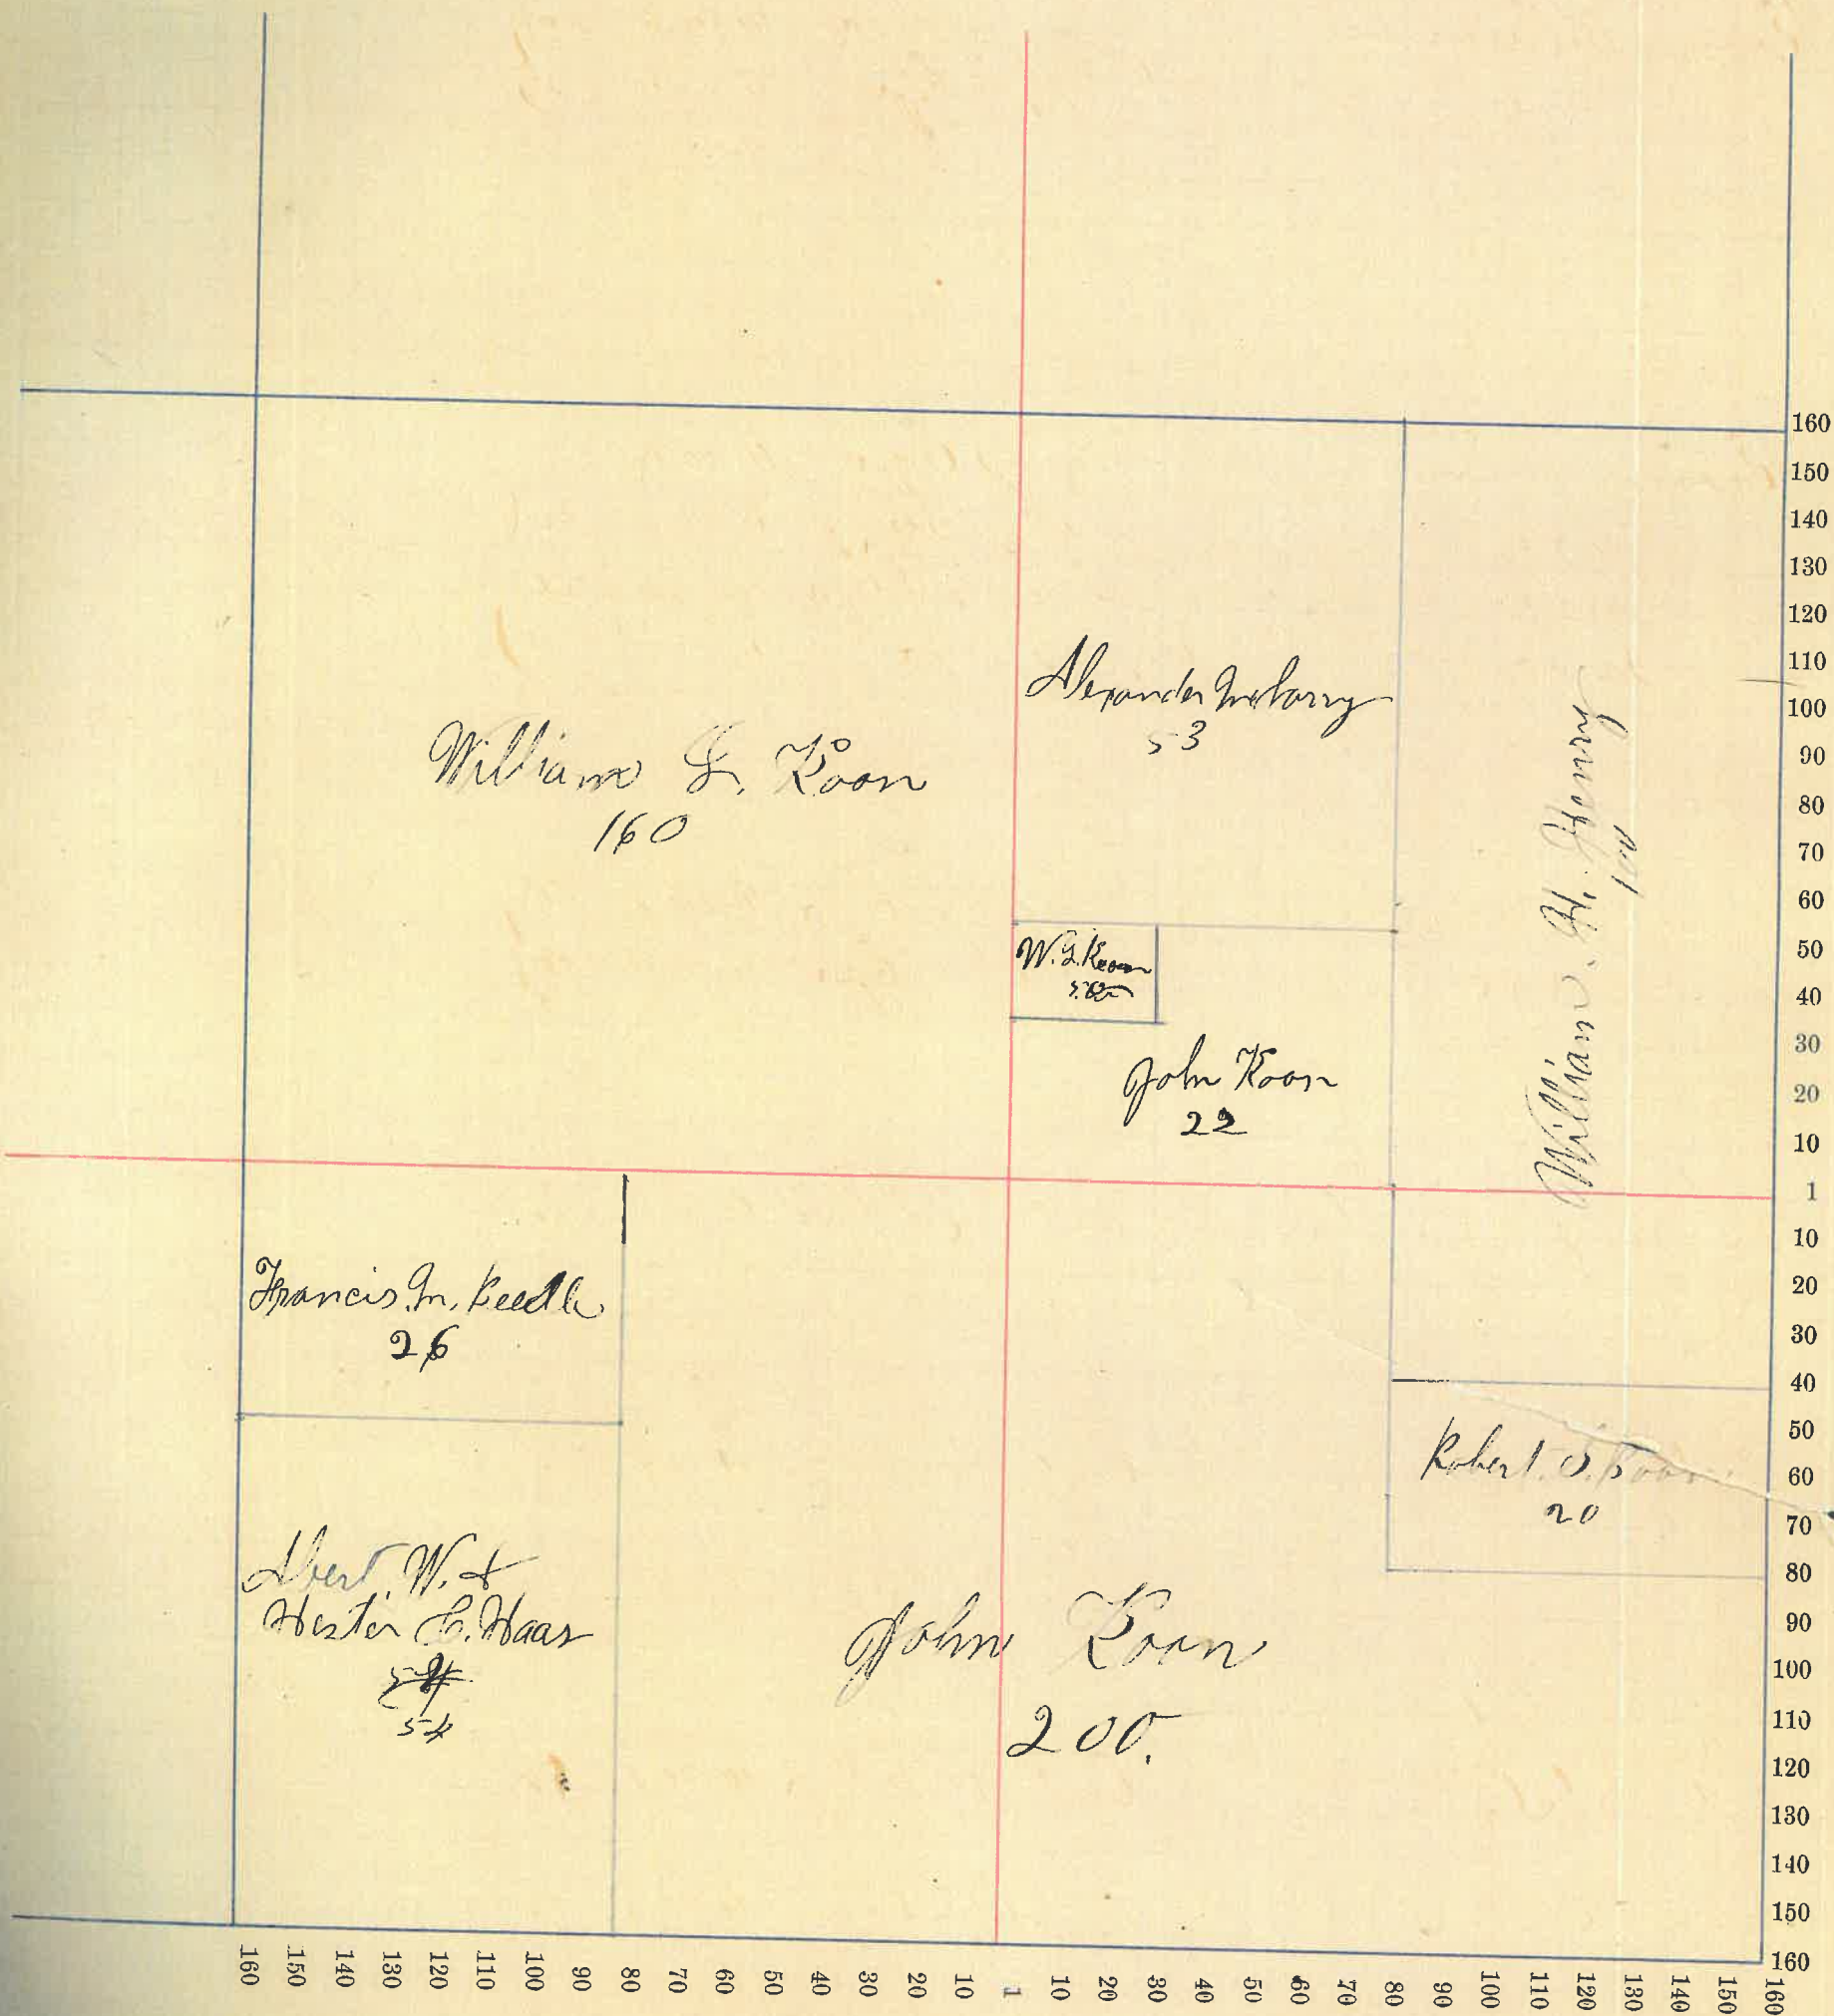 William L. Koon
160
Alexander
53
W. L. Koon
John Koon
22
William. H. Henry
100
Francis. M. Keedle
26
Robert. S. Koon
20
Abert. W. &
Hester C. Haas
54
54
John Koon
200.
160
150
140
130
120
110
100
90
80
70
60
50
40
30
20
10
1
10
20
30
40
50
60
70
80
90
100
110
120
130
140
150
160
160 150 140 130 120 110 100 90 80 70 60 50 40 30 20 10 1 10 20 30 40 50 60 70 80 90 100 110 120 130 140 150 160